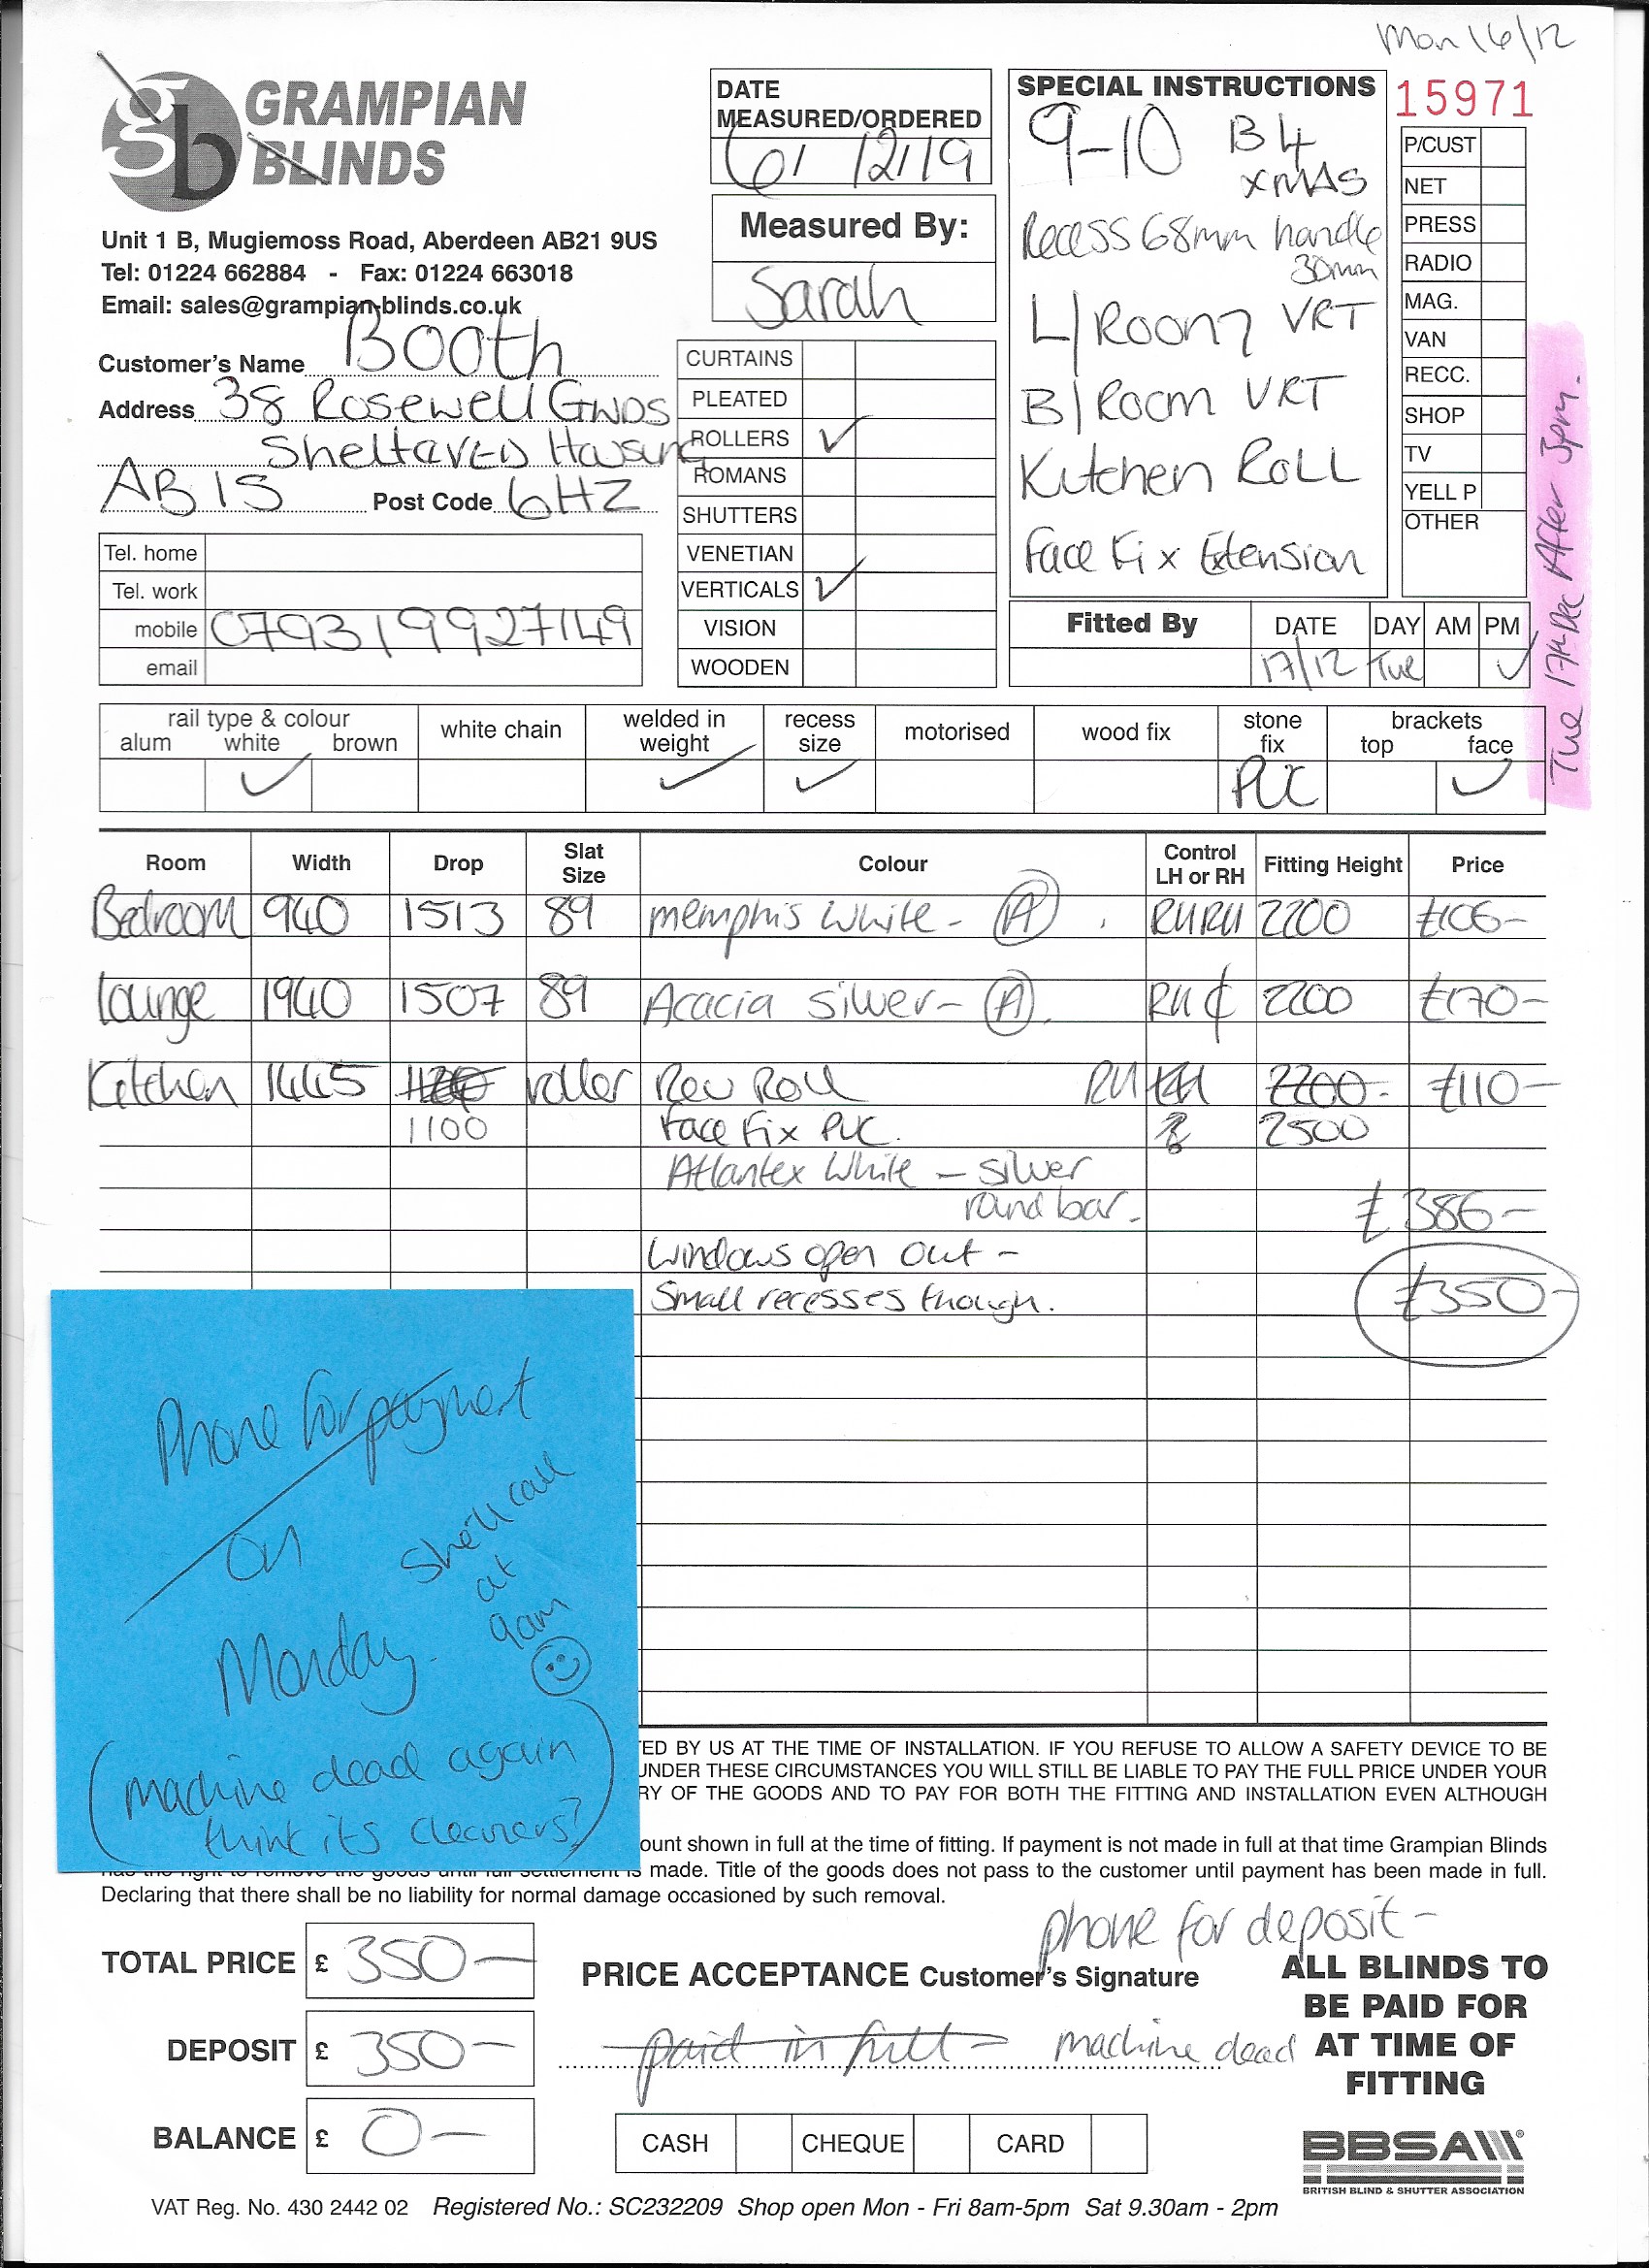 Mon 16/12
GRAMPIAN
BLINDS
gb
Unit 1 B, Mugiemoss Road, Aberdeen AB21 9US
Tel: 01224 662884 - Fax: 01224 663018
Email: sales@grampian-blinds.co.uk
DATE
MEASURED/ORDERED
6/ 12/19
Measured By:
Sarah
SPECIAL INSTRUCTIONS
9-10 B4
XMAS
Recess 68mm handle
30mm
L/Room VRT
B/Room VRT
Kitchen Roll
Face Fix Extension
15971
P/CUST
NET
PRESS
RADIO
MAG.
VAN
RECC.
SHOP
TV
YELL P
OTHER
Tue 17th Dec After 3pm.
Customer's Name Booth
Address 38 Rosewell Gnds
Sheltared Housing
AB15 Post Code 6HZ
Tel. home
Tel. work
mobile 079319927149
email
CURTAINS
PLEATED
ROLLERS ✓
ROMANS
SHUTTERS
VENETIAN
VERTICALS ✓
VISION
WOODEN
Fitted By DATE DAY AM PM
17/12 Tue ✓
rail type & colour white chain welded in weight recess size motorised wood fix stone fix brackets
alum white brown top face
✓ ✓ ✓ PVC ✓
Room Width Drop Slat Size Colour Control LH or RH Fitting Height Price
Bedroom 940 1513 89 Memphis White - A RHRH 2200 £106-
Lounge 1940 1507 89 Acacia Silver - A. RH ¢ 2200 £170-
Kitchen 1445 roller Rev Roll RH 2200- £110-
1100 Face Fix PVC. 2500
Atlantex White - silver
round bar. £386-
Windows open out -
Small recesses though. £350-
Phone for payment
on
Monday.
She'll call
at
9am
(Machine dead again
think its cleaners?)
TED BY US AT THE TIME OF INSTALLATION. IF YOU REFUSE TO ALLOW A SAFETY DEVICE TO BE
UNDER THESE CIRCUMSTANCES YOU WILL STILL BE LIABLE TO PAY THE FULL PRICE UNDER YOUR
RY OF THE GOODS AND TO PAY FOR BOTH THE FITTING AND INSTALLATION EVEN ALTHOUGH
ount shown in full at the time of fitting. If payment is not made in full at that time Grampian Blinds
has the right to remove the goods until full settlement is made. Title of the goods does not pass to the customer until payment has been made in full.
Declaring that there shall be no liability for normal damage occasioned by such removal.
phone for deposit -
TOTAL PRICE £ 350-
PRICE ACCEPTANCE Customer's Signature
DEPOSIT £ 350-
paid in full - machine dead
ALL BLINDS TO
BE PAID FOR
AT TIME OF
FITTING
BALANCE £ 0-
CASH CHEQUE CARD
BBSA
BRITISH BLIND & SHUTTER ASSOCIATION
VAT Reg. No. 430 2442 02 Registered No.: SC232209 Shop open Mon - Fri 8am-5pm Sat 9.30am - 2pm